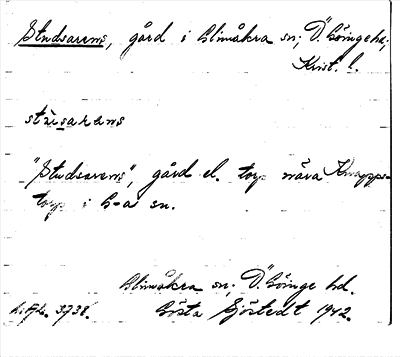 Studsarens, gård i Glimåkra sn; Ö. Göinge hd;
Krist. l.
"Studsarens", gård el. torp nära Knapps-
torp i G-a sn.
Glimåkra sn; Ö. Göinge hd.
3738. Gösta Sjöstedt 1942.